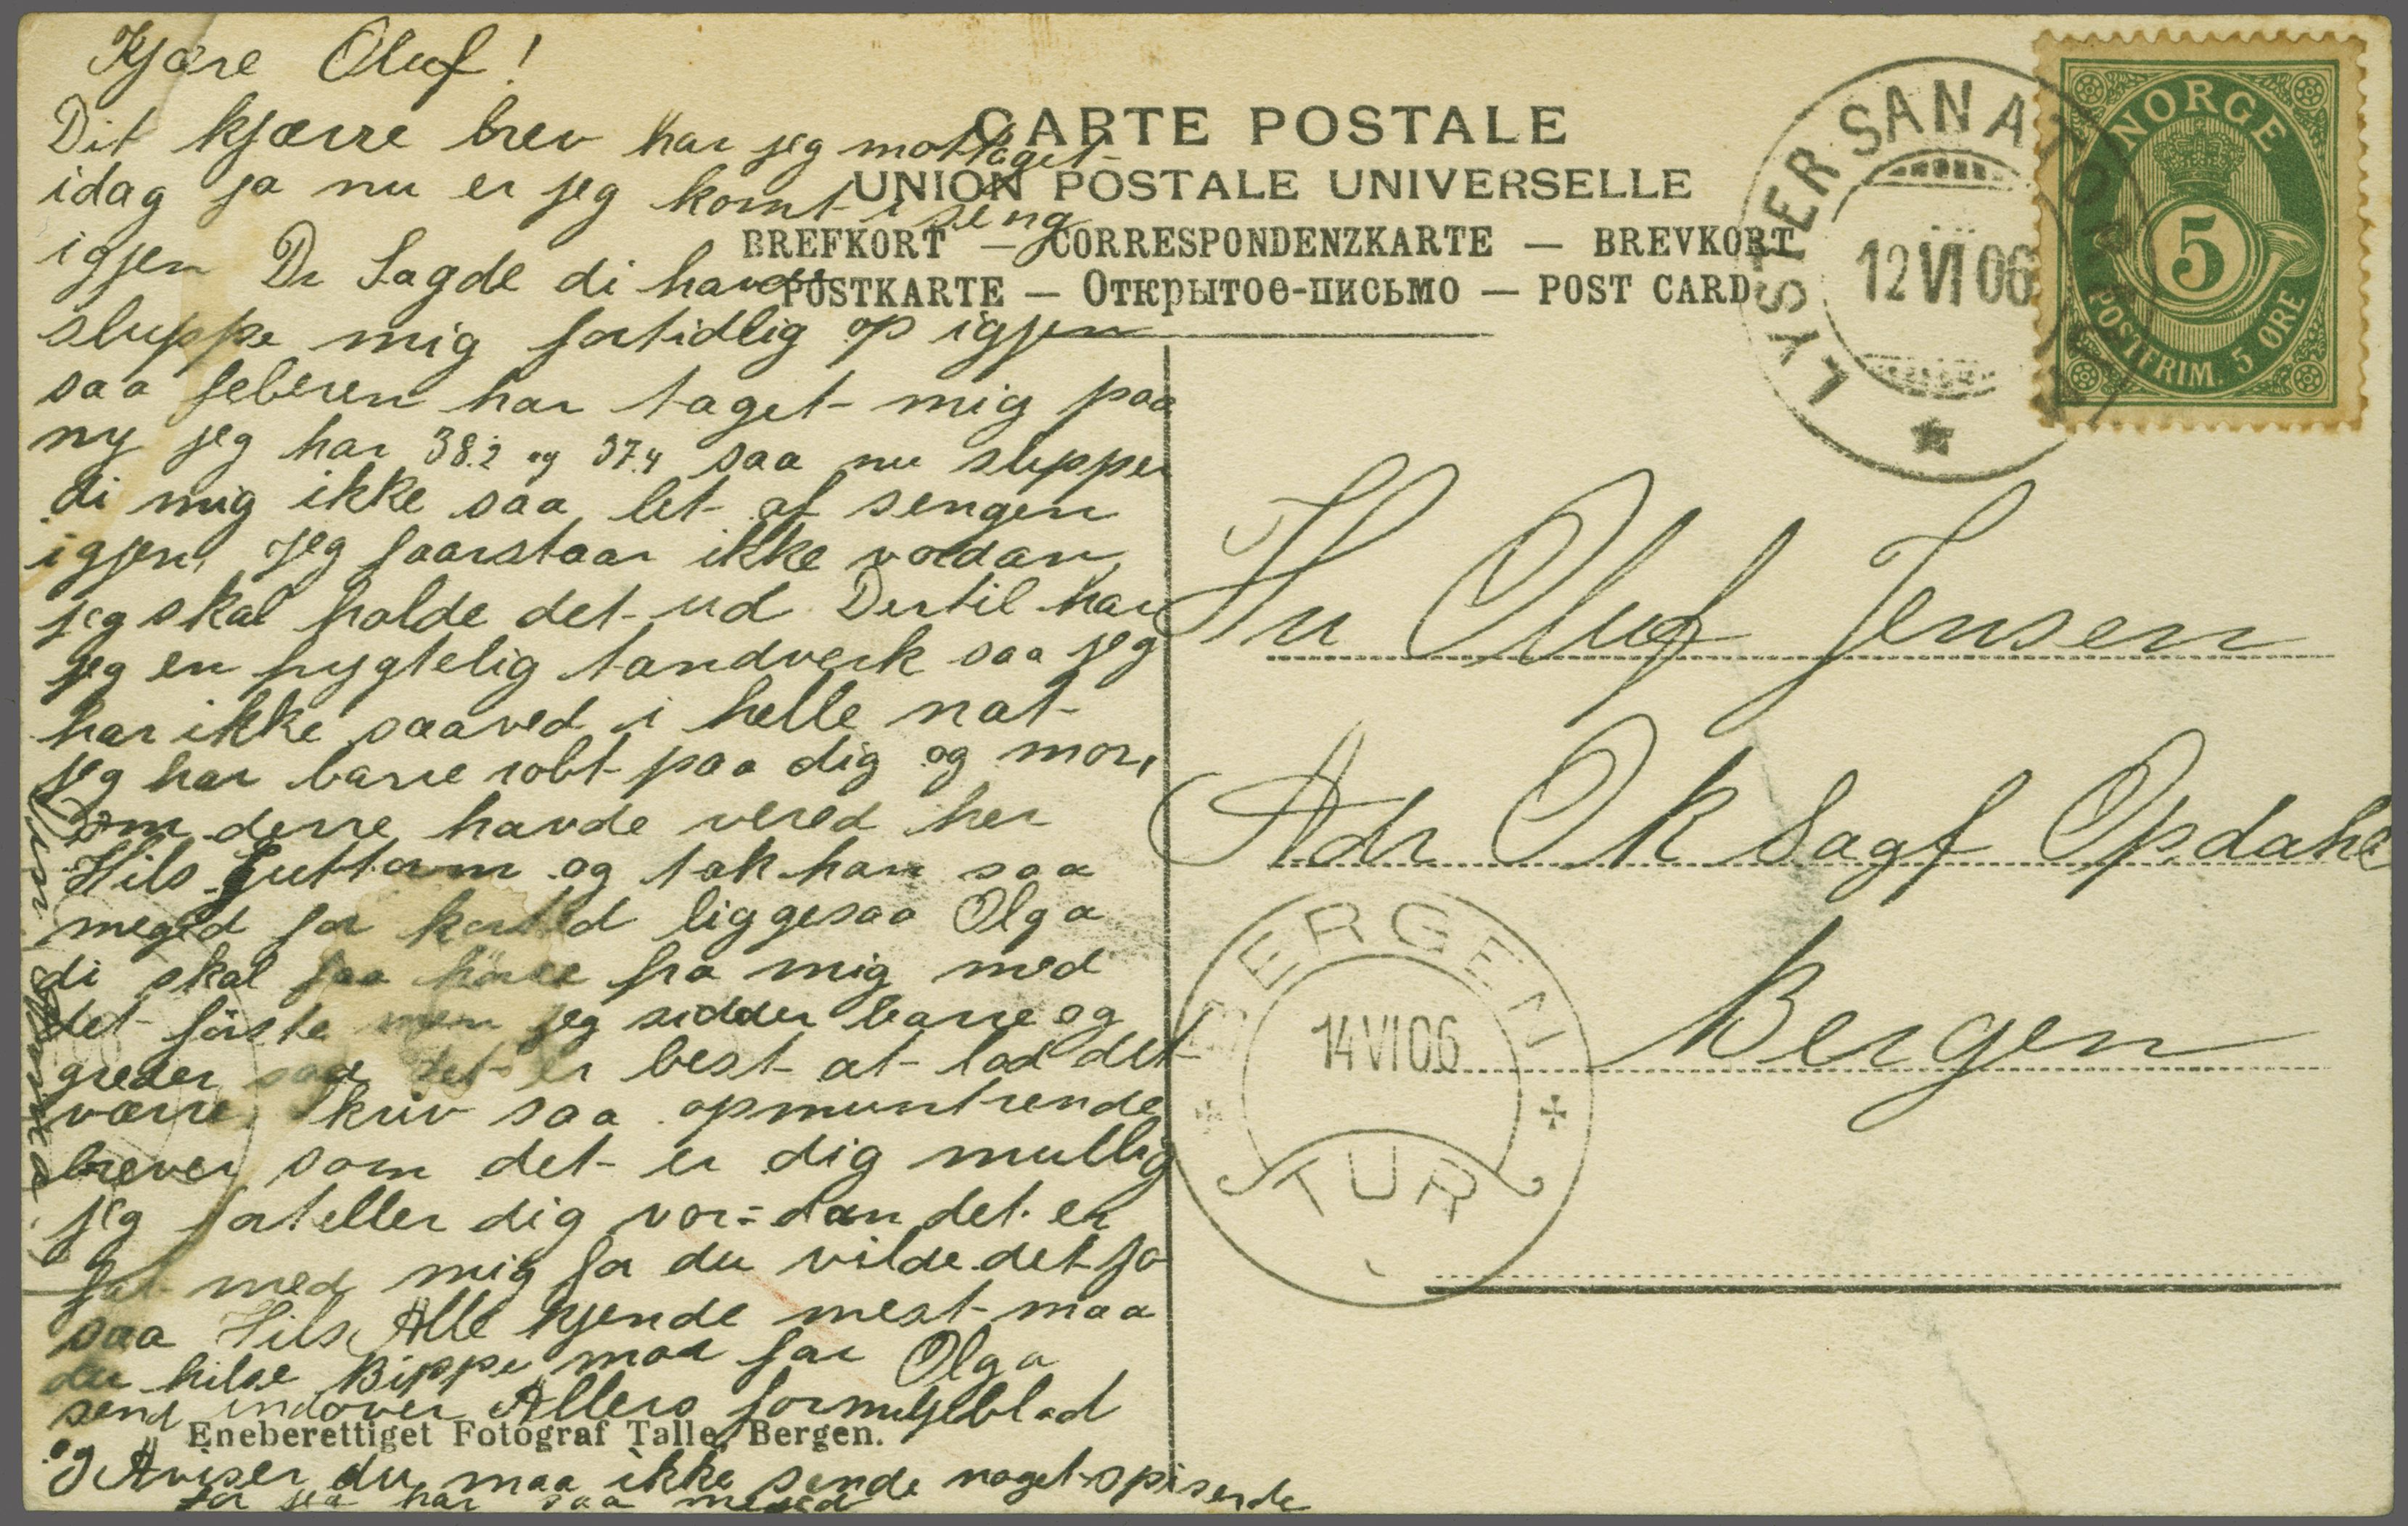 Kjære Oluf!
Dit kjærre brev har jeg mottaget
idag ja nu er jeg komt i seng
igjen Dr Sagde di havde
sluppe mig fortidlig op igjen
saa feberen har taget mig paa
ny jeg har 38.2 og 37.4 saa nu slipper
di mig ikke saa let af sengen
igjen, jeg faarstaar ikke vordan
jeg skal holde det ud Dertil har
jeg en frygtelig tandverk saa jeg
har ikke saaved i helle nat
jeg har barre robt paa dig og mor,
Som derre havde vered her
Hils Guttorm og tak han saa
meged for korted liggesaa Olga
di skal faa hörre fra mig med
det förste men jeg sidder barre og
greder saa det er best at lad det
værre, skriv saa opmuntrende
brever som det er dig mullig
jeg forteller dig vor=dan det er
fat med mig for du vilde det jo
saa Hils Alle kjende mest maa
du hilse Bippe mor far Olga
send indover Allers formiljeblad
og Aviser du maa ikke sende noget spisende
for jeg har saa meged
CARTE POSTALE
UNION POSTALE UNIVERSELLE
BREFKORT — CORRESPONDENZKARTE — BREVKORT
POSTKARTE — Открытое-письмо — POST CARD
LYSTER SANATORIUM
12 VI 06
NORGE
5
POSTFRIM. 5 ØRE
Hr Oluf Jensen
Adr O K Sagf Opdahl
Bergen
BERGEN
14 VI 06
TUR
Eneberettiget Fotograf Talle, Bergen.